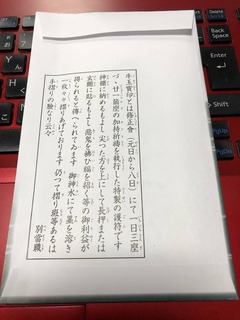 牛玉寶印とは修正會（元日から八日）にて一日三座
づゝ廿一箇座の加持祈禱を執行した特製の護符です
神棚に納めるもよし 尖つた方を上にして長押または
玄關に貼るもよし 惡鬼を拂ひ福を招く等の御利益が
得られると傳へられてゐます 御神水にて墨を溶き
一枚々々摺りあげております 仍つて摺り斑等あるは
手摺りの驗なり云々
別當職